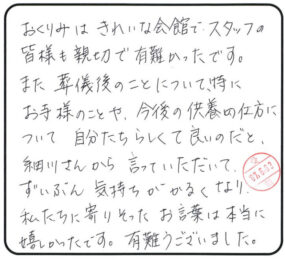 おくりみは きれいな会館で スタッフの
皆様も親切で有難かったです。
また 葬儀後のことについて、特に
お手様のことや、今後の供養の仕方に
ついて 自分たちらしくて良いのだと、
細川さんから 言っていただいて、
ずいぶん 気持ちが かるく なり
私たちに寄りそった お言葉は本当に
嬉しかったです。有難うございました。